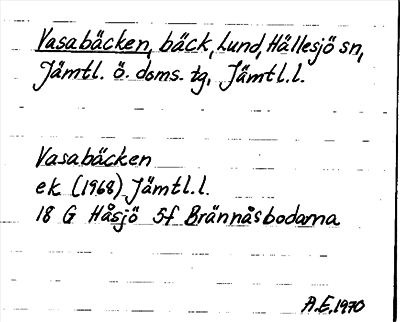 Vasabäcken, bäck, Lund, Hällesjö sn,
Jämtl. ö. doms. tg, Jämtl.l.
Vasabäcken
ek (1968) Jämtl.l.
18 G Håsjö 5f Brännåsbodarna
A.E. 1970